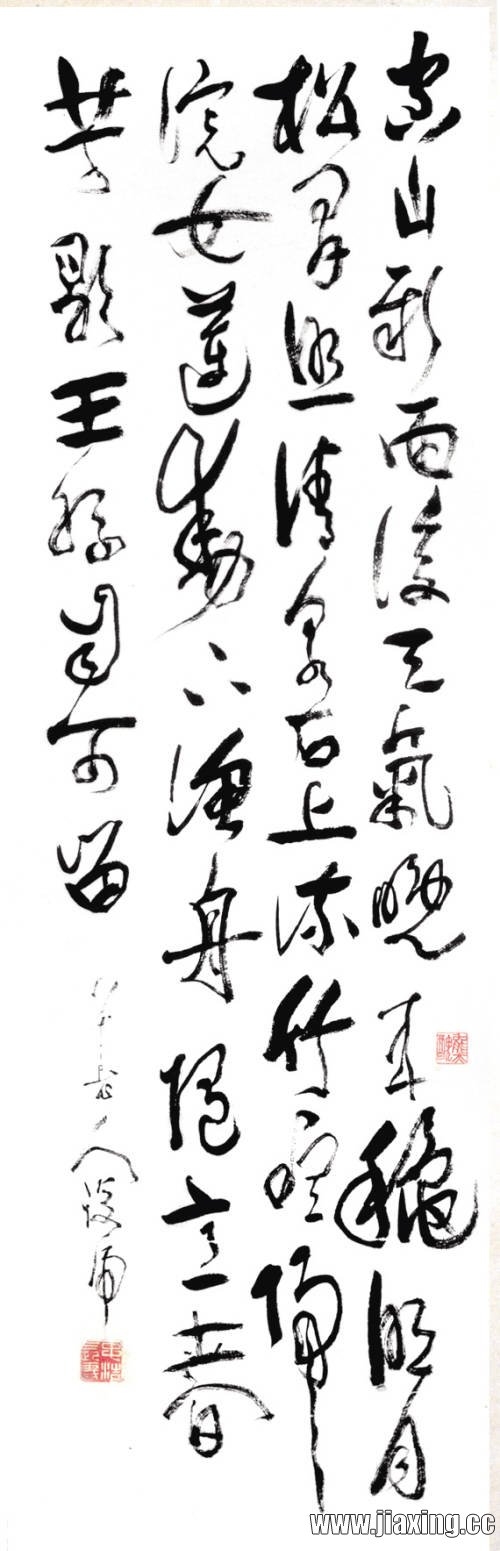 空山新雨後天氣晚来穐明月
松間照清泉石上流竹喧歸
浣女蓮動下漁舟隨意春
芳歇王孫自可留
www.jiaxing.cc